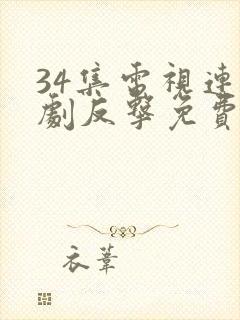 34集電視連
劇反擊免費
衣葦